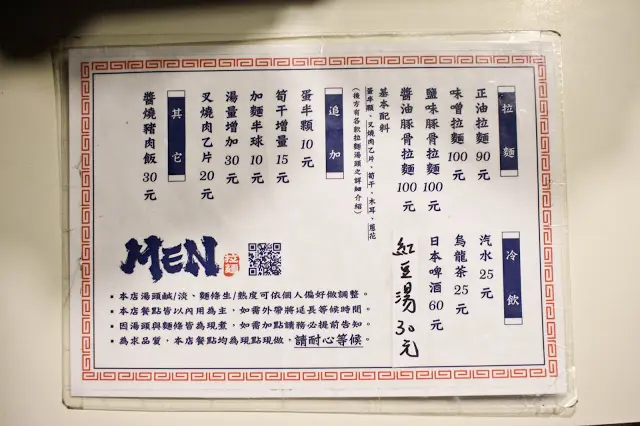 拉麵
正油拉麵 90元
味噌拉麵 100元
鹽味豚骨拉麵 100元
醬油豚骨拉麵 100元
基本配料
蛋半顆、叉燒肉乙片、筍干、木耳、蔥花
(後方有各款拉麵湯頭之詳細介紹)
追加
蛋半顆 10元
筍干增量 15元
加麵半球 10元
湯量增加 30元
叉燒肉乙片 20元
其它
醬燒豬肉飯 30元
冷飲
汽水 25元
烏龍茶 25元
日本啤酒 60元
紅豆湯 30元
MEN
拉麵
▪本店湯頭鹹/淡、麵條生/熟度可依個人偏好做調整。
▪本店餐點皆以內用為主,如需外帶將延長等候時間。
▪因湯頭與麵條皆為現煮,如需加點請務必提前告知。
▪為求品質,本店餐點均為現點現做,請耐心等候。